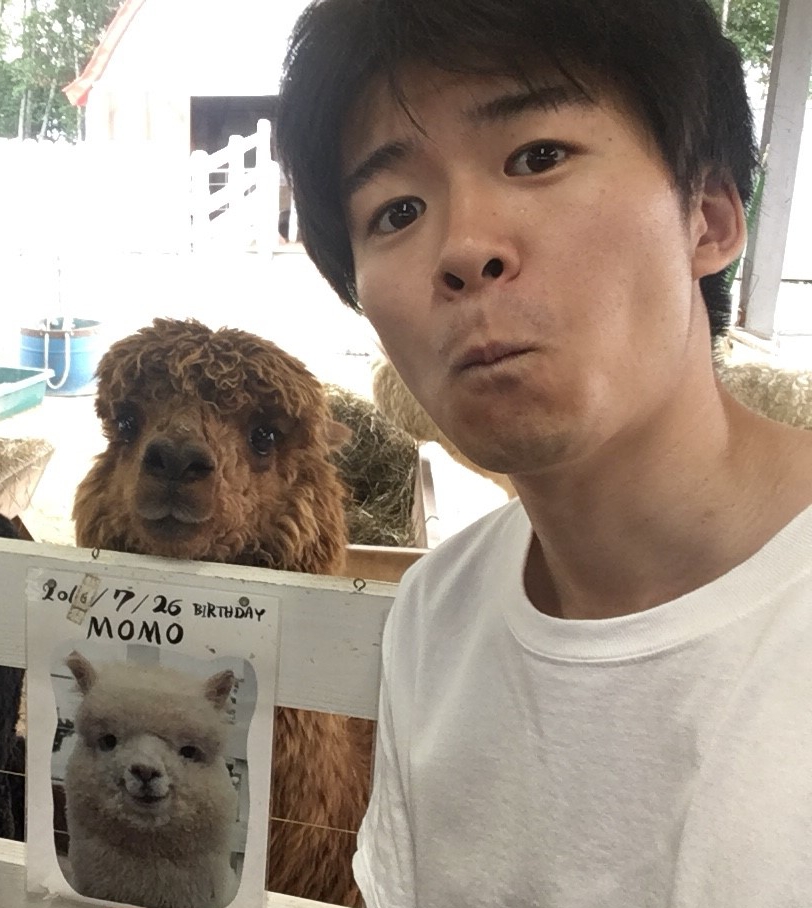 2016/7/26 BIRTHDAY
MOMO